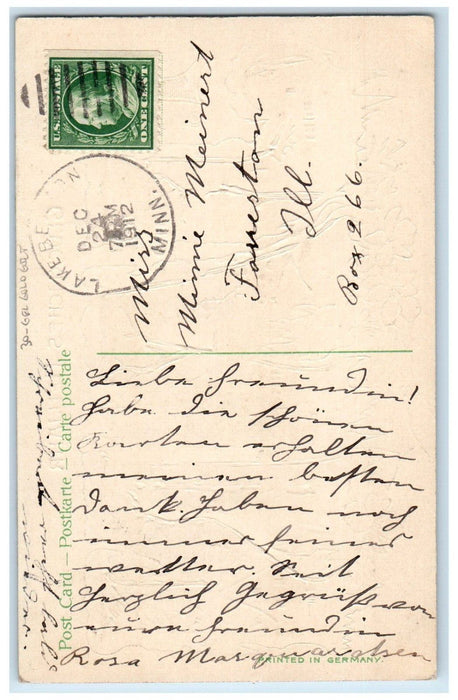 U.S. POSTAGE
ONE CENT
LAKE BENTON
DEC
24
7 PM
1912
MINN.
Miss
Minnie Meinert
Forreston
Ill.
Box 266.
Post Card — Postkarte — Carte postale
Liebe Freundin!
habe die schönen
Karten erhalten
meinen besten
Dank haben noch
immer feines
wetter. Seit
herzlich Gegrüßt von
eure freundin
Rosa Marquardsen
PRINTED IN GERMANY.